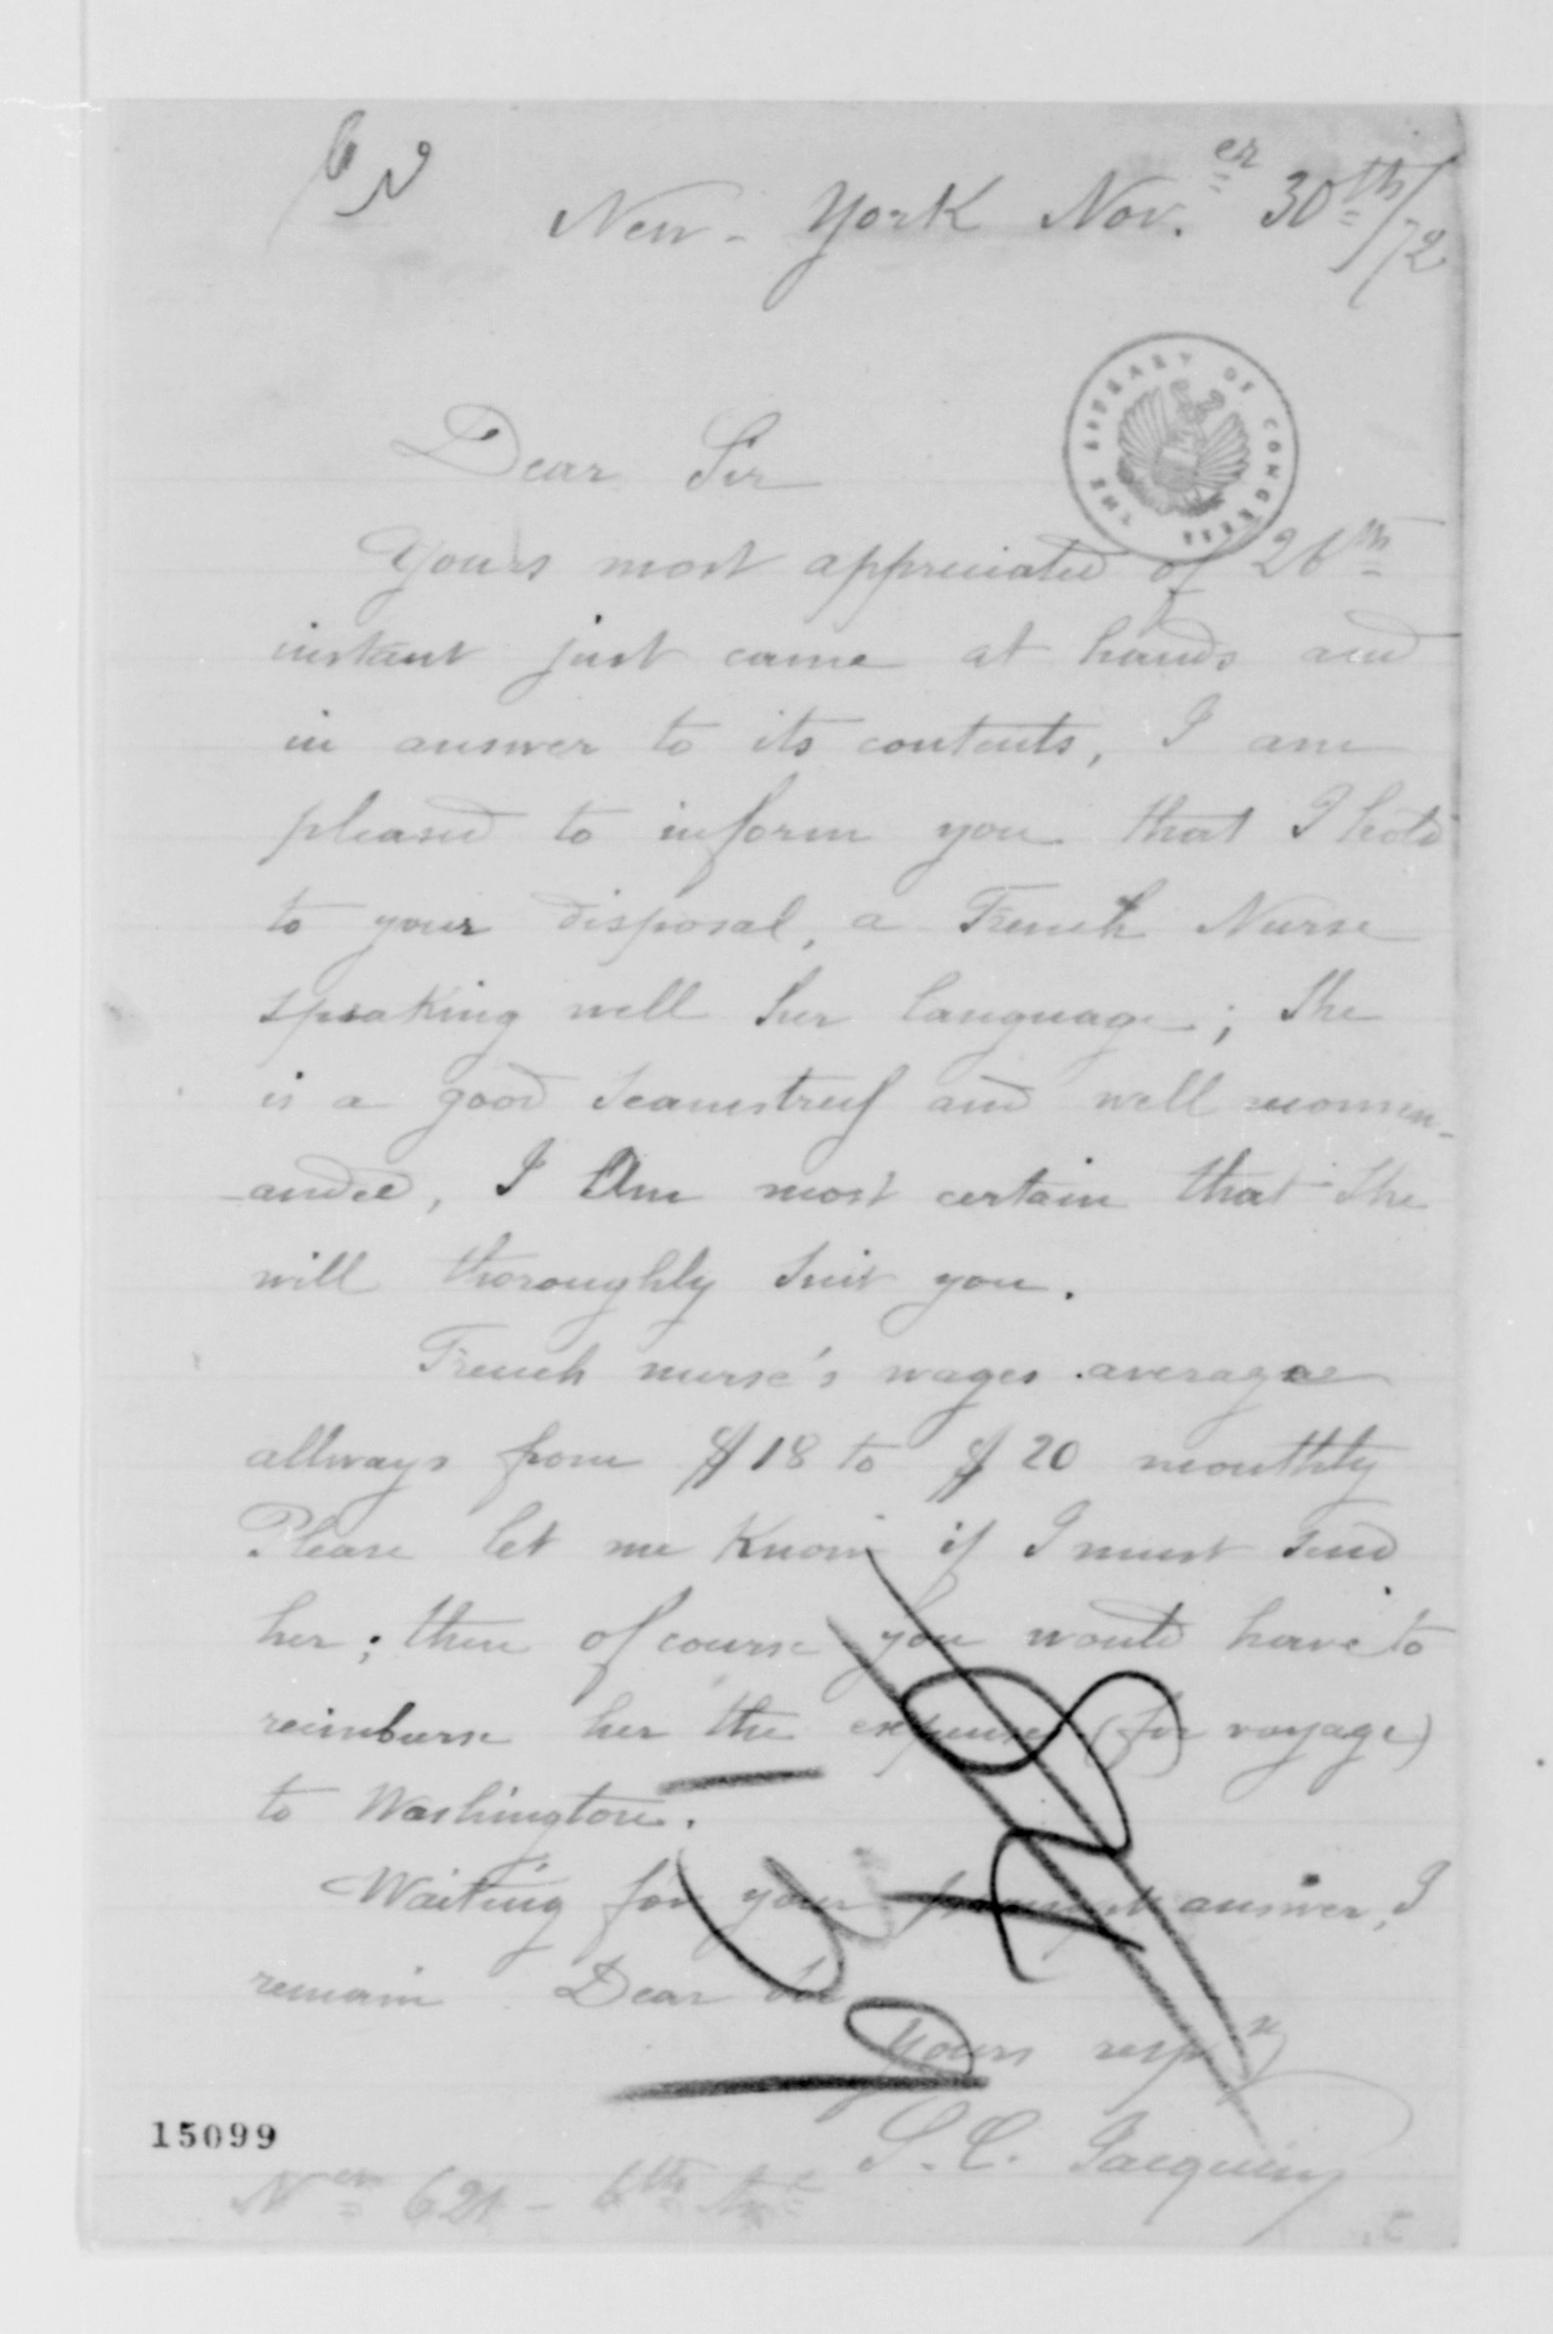 New-York Nov.er 30th/72
THE LIBRARY OF CONGRESS
Dear Sir
Yours most appreciated of 26th
instant just came at hands and
in answer to its contents, I am
pleased to inform you that I hold
to your disposal, a French Nurse
speaking well her language; She
is a good Seamstress and well recommen-
-anded, I Am most certain that She
will thoroughly Suit you.
French nurse's wages average
allways from $18 to $20 monthly
Please let me Know if I must Send
her; then of course you would have to
reimburse her the expenses (for voyage)
to Washington.
Waiting for your prompt answer, I
remain Dear Sir
Yours respy
S. C. Jacquin
15099
Ner 621 - 6th Ave